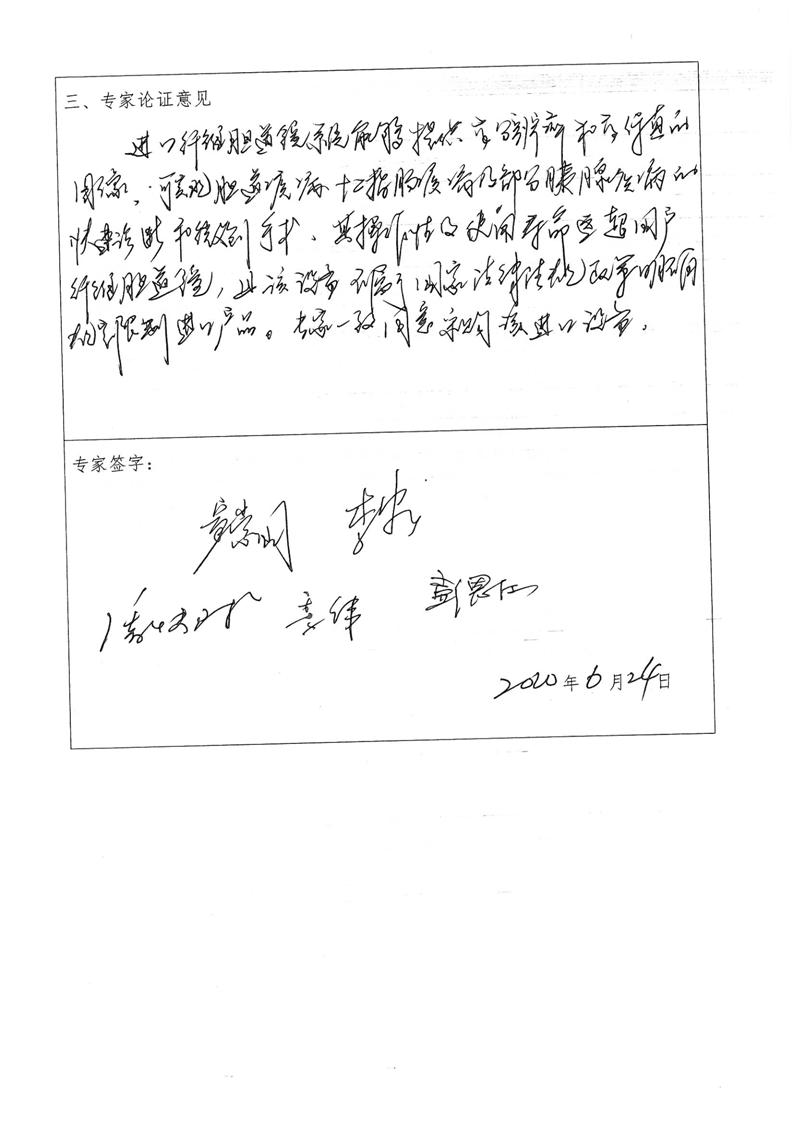 三、专家论证意见
进口纤维胆道镜系统能够提供高分辨率和高保真的
图像,可实现胆道疾病、十二指肠疾病及部分胰腺疾病的
快速诊断和微创手术。其操作性及使用寿命远超国产
纤维胆道镜,且该设备不属于国家法律法规政策明确
规定限制进口产品。专家一致同意采购该进口设备。
专家签字:
李
2020年6月24日